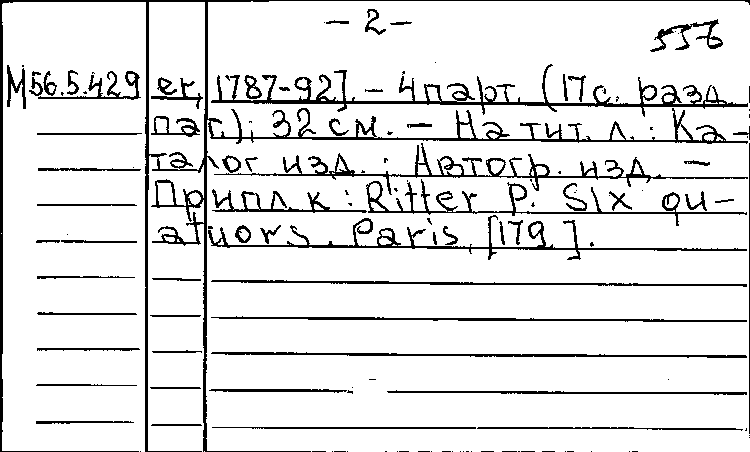 - 2 -
556
М56.5.429 er, 1787-92]. - 4 парт. (17 с. разд.
паг.); 32 см. - На тит. л.: Ка-
талог изд.; Автогр. изд. -
Припл. к: Ritter P. Six qu-
atuors. Paris, [179 ].